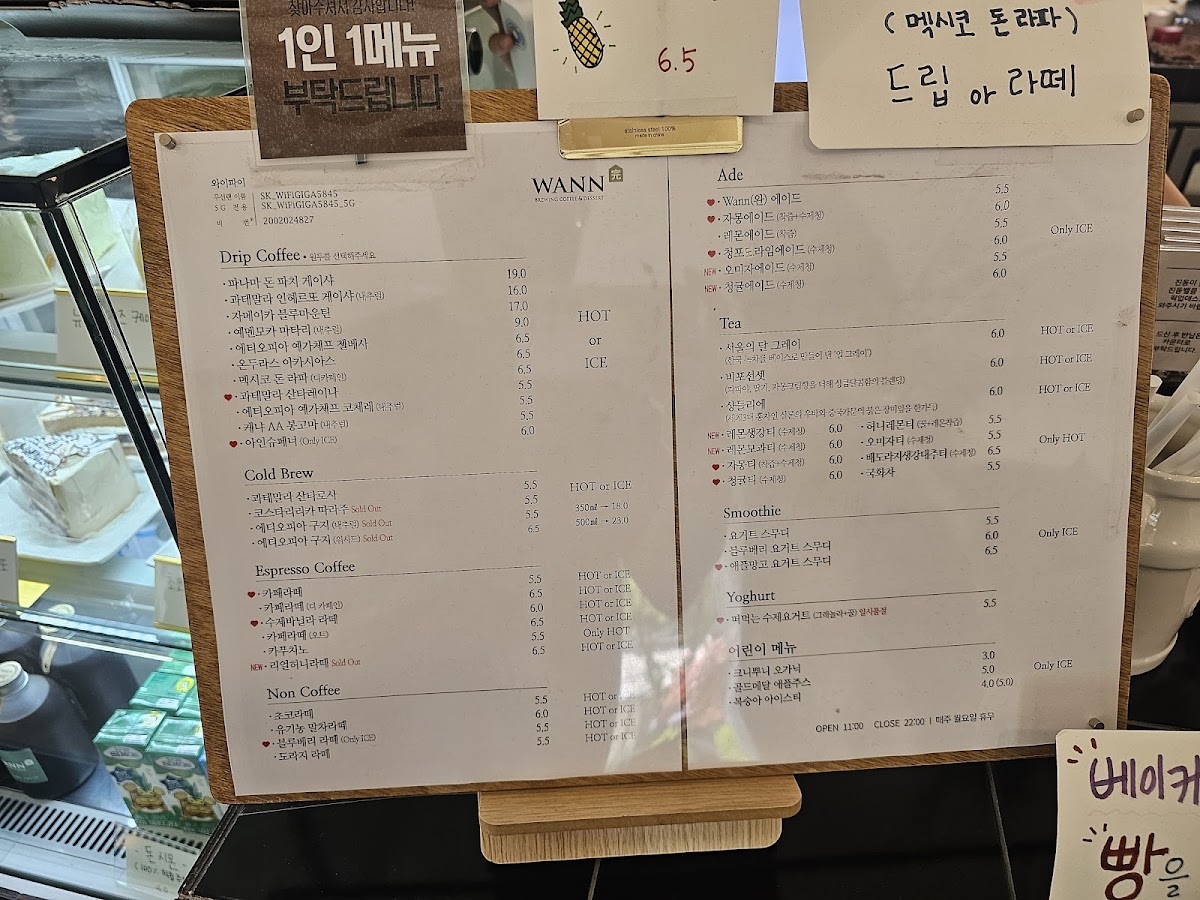 찾아주셔서 감사합니다!
1인 1메뉴
부탁드립니다
6.5
stainless steel 100%
made in china
(멕시코 돈 라파)
드립 아 라떼
와이파이
무선랜 이름 SK_WiFiGIGA5845
5G 전용 SK_WiFiGIGA5845_5G
비 번* 2002024827
WANN 完
BREWING COFFEE & DESSERT
Drip Coffee • 원두를 선택해주세요
· 파나마 돈 파치 게이샤 19.0
· 과테말라 인헤르또 게이샤 (내추럴) 16.0
· 자메이카 블루마운틴 17.0
· 예멘모카 마타리 (내추럴) 9.0
· 에티오피아 예가체프 첼베사 6.5
· 온두라스 아카시아스 6.5
· 멕시코 돈 라파 (디카페인) 6.5
♥ · 과테말라 산타레이나 5.5
· 에티오피아 예가체프 코체레 (내추럴) 5.5
· 케냐 AA 봉고마 (내추럴) 5.5
♥ · 아인슈페너 (Only ICE) 6.0
HOT
or
ICE
Cold Brew
· 과테말라 산타로사 5.5 HOT or ICE
· 코스타리카 따라주 Sold Out 5.5
· 에티오피아 구지 (내추럴) Sold Out 5.5 350㎖ → 18.0
· 에티오피아 구지 (워시드) Sold Out 6.5 500㎖ → 23.0
Espresso Coffee
♥ · 카페라떼 5.5 HOT or ICE
· 카페라떼 (디카페인) 6.5 HOT or ICE
♥ · 수제바닐라 라떼 6.0 HOT or ICE
· 카페라떼 (오트) 6.5 HOT or ICE
· 카푸치노 5.5 Only HOT
NEW · 리얼허니라떼 Sold Out 6.5 HOT or ICE
Non Coffee
· 초코라떼 5.5 HOT or ICE
· 유기농 말차라떼 6.0 HOT or ICE
♥ · 블루베리 라떼 (Only ICE) 5.5 HOT or ICE
· 도라지 라떼 5.5 HOT or ICE
Ade
♥ · Wann(완) 에이드 5.5
♥ · 자몽에이드 (착즙+수제청) 6.0
· 레몬에이드 (착즙) 5.5
♥ · 청포도라임에이드 (수제청) 6.0
NEW · 오미자에이드 (수제청) 5.5
NEW · 청귤에이드 (수제청) 6.0
Only ICE
Tea
· 서울의 단 그레이 6.0 HOT or ICE
(한국 녹차를 베이스로 만들어 낸 '얼 그레이')
· 비포선셋 6.0 HOT or ICE
(파파야, 딸기, 자몽크림향을 더해 상큼달콤함의 블렌딩)
· 샹들리에 6.0 HOT or ICE
NEW · 레몬생강티 (수제청) 6.0 · 허니레몬티 5.5
NEW · 레몬모과티 (수제청) 6.0 · 오미자티 (수제청) 5.5
♥ · 자몽티 (착즙+수제청) 6.0 · 배도라지생강대추티 (수제청) 6.5
♥ · 청귤티 (수제청) 6.0 · 국화차 5.5
Only HOT
Smoothie
· 요거트 스무디 5.5
· 블루베리 요거트 스무디 6.0
♥ · 애플망고 요거트 스무디 6.5
Only ICE
Yoghurt
♥ · 떠먹는 수제요거트 (그래놀라+꿀) 일시품절 5.5
어린이 메뉴
· 크니뿌니 오가닉 3.0
· 골드메달 애플주스 5.0
· 복숭아 아이스티 4.0 (5.0)
Only ICE
OPEN 11:00 CLOSE 22:00 | 매주 월요일 휴무
베이커
빵을
돈 시몬